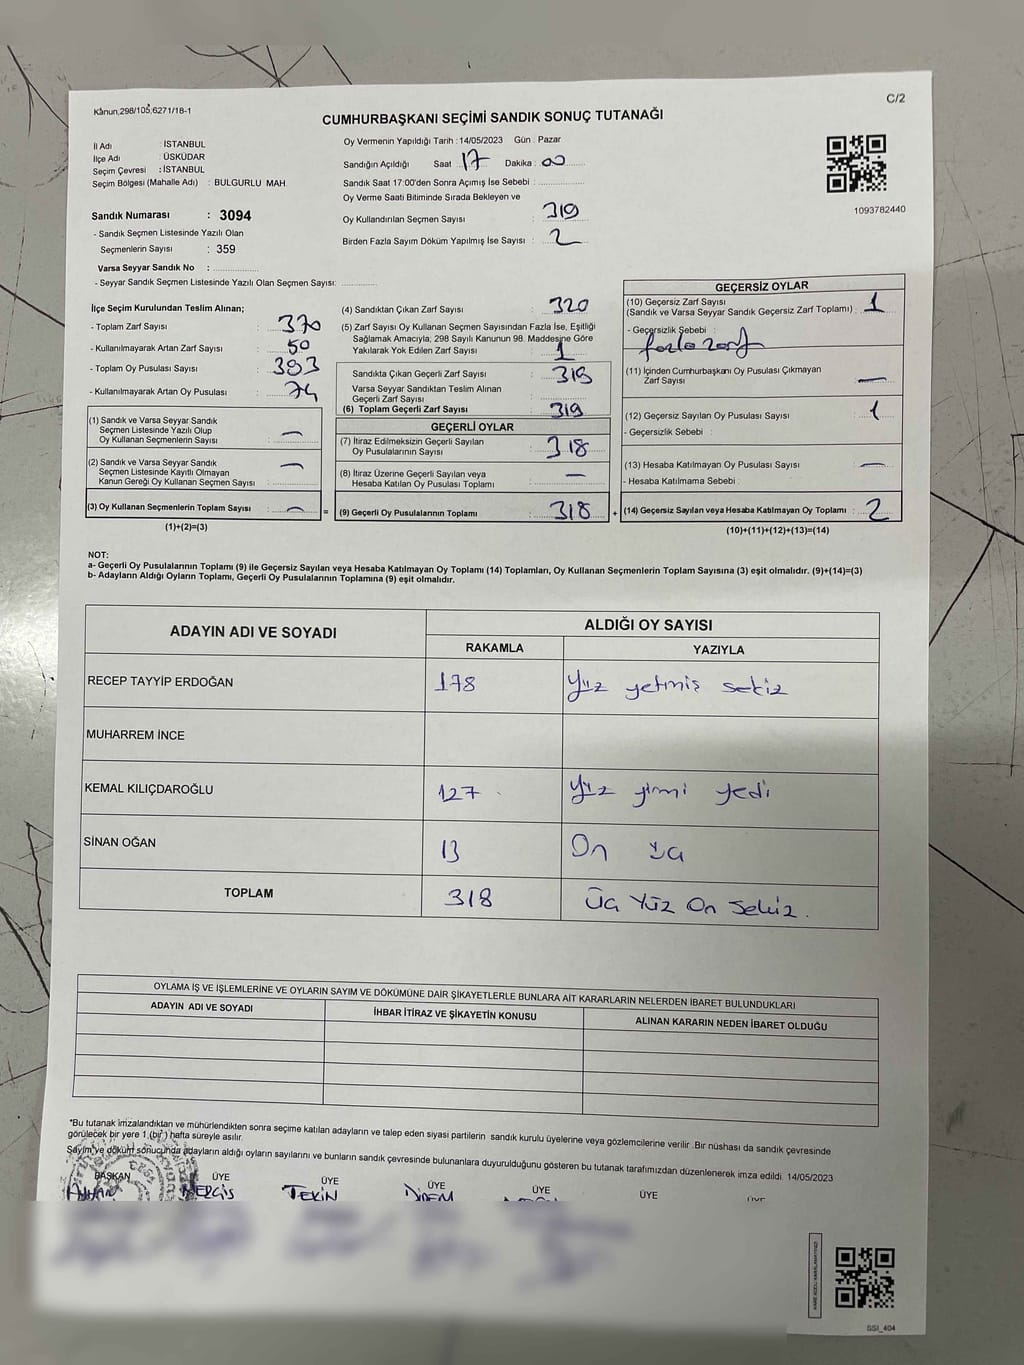 Kanun,298/105,6271/18-1
C/2
CUMHURBAŞKANI SEÇİMİ SANDIK SONUÇ TUTANAĞI
İl Adı : İSTANBUL
İlçe Adı : ÜSKÜDAR
Seçim Çevresi : İSTANBUL
Seçim Bölgesi (Mahalle Adı) : BULGURLU MAH.
Sandık Numarası : 3094
- Sandık Seçmen Listesinde Yazılı Olan
Seçmenlerin Sayısı : 359
Varsa Seyyar Sandık No :
- Seyyar Sandık Seçmen Listesinde Yazılı Olan Seçmen Sayısı:
Oy Vermenin Yapıldığı Tarih : 14/05/2023 Gün : Pazar
Sandığın Açıldığı Saat : 17 Dakika : 00
Sandık Saat 17:00'den Sonra Açımış İse Sebebi :
Oy Verme Saati Bitiminde Sırada Bekleyen ve
Oy Kullandırılan Seçmen Sayısı : 319
Birden Fazla Sayım Döküm Yapılmış İse Sayısı : 2
1093782440
İlçe Seçim Kurulundan Teslim Alınan;
- Toplam Zarf Sayısı : 370
- Kullanılmayarak Artan Zarf Sayısı : 50
- Toplam Oy Pusulası Sayısı : 393
- Kullanılmayarak Artan Oy Pusulası : 74
(1) Sandık ve Varsa Seyyar Sandık
Seçmen Listesinde Yazılı Olup
Oy Kullanan Seçmenlerin Sayısı : —
(2) Sandık ve Varsa Seyyar Sandık
Seçmen Listesinde Kayıtlı Olmayan
Kanun Gereği Oy Kullanan Seçmen Sayısı : —
(3) Oy Kullanan Seçmenlerin Toplam Sayısı : — =
(1)+(2)=(3)
(4) Sandıktan Çıkan Zarf Sayısı : 320
(5) Zarf Sayısı Oy Kullanan Seçmen Sayısından Fazla İse, Eşitliği
Sağlamak Amacıyla; 298 Sayılı Kanunun 98. Maddesine Göre
Yakılarak Yok Edilen Zarf Sayısı : 1
Sandıkta Çıkan Geçerli Zarf Sayısı : 319
Varsa Seyyar Sandıktan Teslim Alınan
Geçerli Zarf Sayısı :
(6) Toplam Geçerli Zarf Sayısı : 319
GEÇERLİ OYLAR
(7) İtiraz Edilmeksizin Geçerli Sayılan
Oy Pusulalarının Sayısı : 318
(8) İtiraz Üzerine Geçerli Sayılan veya
Hesaba Katılan Oy Pusulası Toplamı : —
(9) Geçerli Oy Pusulalarının Toplamı : 318 +
GEÇERSİZ OYLAR
(10) Geçersiz Zarf Sayısı
(Sandık ve Varsa Seyyar Sandık Geçersiz Zarf Toplamı) : 1
- Geçersizlik Sebebi :
fazla zarf
(11) İçinden Cumhurbaşkanı Oy Pusulası Çıkmayan
Zarf Sayısı : —
(12) Geçersiz Sayılan Oy Pusulası Sayısı : 1
- Geçersizlik Sebebi :
(13) Hesaba Katılmayan Oy Pusulası Sayısı : —
- Hesaba Katılmama Sebebi :
(14) Geçersiz Sayılan veya Hesaba Katılmayan Oy Toplamı : 2
(10)+(11)+(12)+(13)=(14)
NOT:
a- Geçerli Oy Pusulalarının Toplamı (9) ile Geçersiz Sayılan veya Hesaba Katılmayan Oy Toplamı (14) Toplamları, Oy Kullanan Seçmenlerin Toplam Sayısına (3) eşit olmalıdır. (9)+(14)=(3)
b- Adayların Aldığı Oyların Toplamı, Geçerli Oy Pusulalarının Toplamına (9) eşit olmalıdır.
ADAYIN ADI VE SOYADI
ALDIĞI OY SAYISI
RAKAMLA YAZIYLA
RECEP TAYYİP ERDOĞAN 178 Yüz yetmiş sekiz
MUHARREM İNCE
KEMAL KILIÇDAROĞLU 127 Yüz yimi yedi
SİNAN OĞAN 13 On üç
TOPLAM 318 Üç Yüz On Sekiz.
OYLAMA İŞ VE İŞLEMLERİNE VE OYLARIN SAYIM VE DÖKÜMÜNE DAİR ŞİKAYETLERLE BUNLARA AİT KARARLARIN NELERDEN İBARET BULUNDUKLARI
ADAYIN ADI VE SOYADI İHBAR İTİRAZ VE ŞİKAYETİN KONUSU ALINAN KARARIN NEDEN İBARET OLDUĞU
*Bu tutanak imzalandıktan ve mühürlendikten sonra seçime katılan adayların ve talep eden siyasi partilerin sandık kurulu üyelerine veya gözlemcilerine verilir .Bir nüshası da sandık çevresinde
görülecek bir yere 1 (bir ) hafta süreyle asılır.
Sayım ve döküm sonucunda adayların aldığı oyların sayılarını ve bunların sandık çevresinde bulunanlara duyurulduğunu gösteren bu tutanak tarafımızdan düzenlenerek imza edildi. 14/05/2023
BAŞKAN ÜYE ÜYE ÜYE ÜYE ÜYE ÜYE
NERGİS TEKİN DİDEM
SSI_404